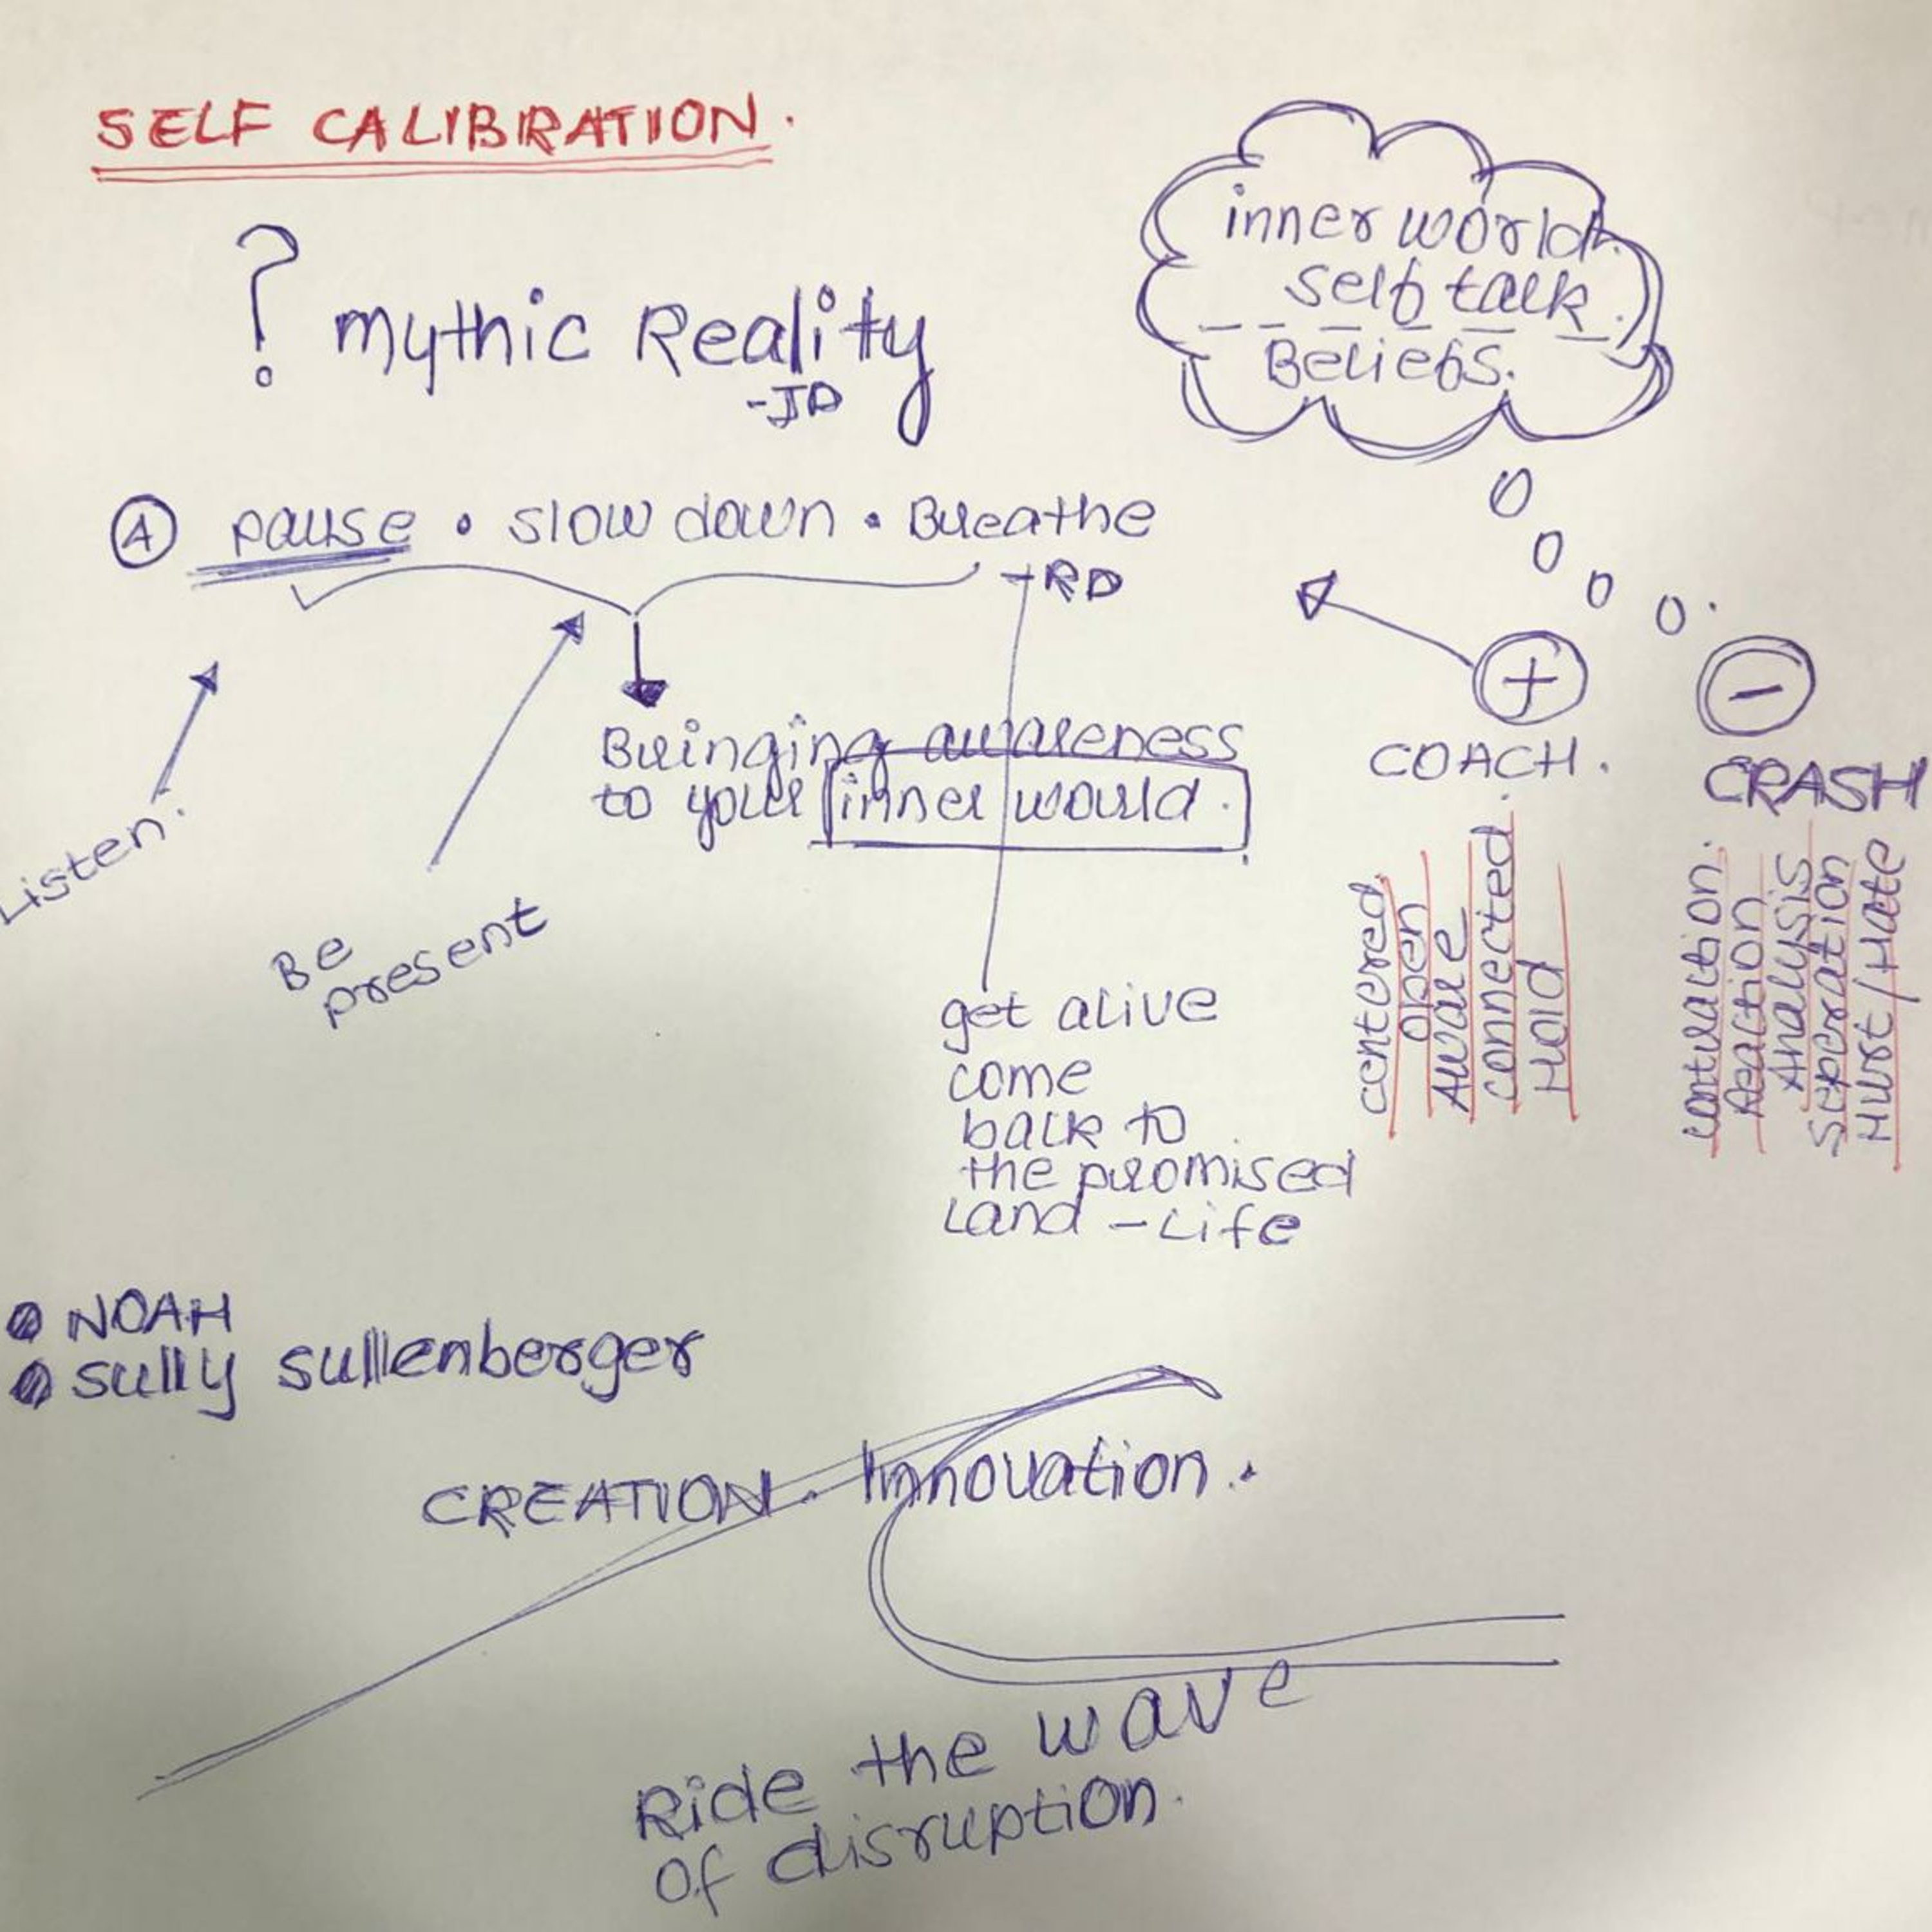 SELF CALIBRATION.
? mythic Reality
-JD
inner world.
self talk.
Beliefs.
A pause • slow down • Breathe
-RD
Listen.
Be
present
Bringing awareness
to your inner world.
+
COACH.
centered
open
Aware
connected
Hold
-
CRASH
contraction.
Reaction
Analysis
Separation
Hurt/Hate
get alive
come
back to
the promised
Land - Life
• NOAH
• sully sullenberger
CREATION. Innovation.
Ride the wave
of disruption.